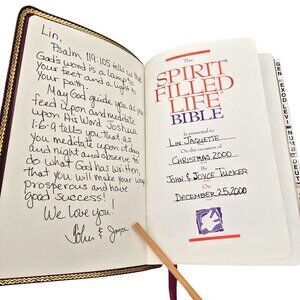 Lin,
Psalm 119:105 tells us that
God's word is a lamp to
your feet and a light to
your path.
May God guide you as you
feed upon and meditate
upon His Word. Joshua
1:6-9 tells you that as
you meditate upon it day
and night and observe to
do what God has written,
that you will make your way
prosperous and have
good success!
We love you!
John & Joyce
This
SPIRIT
FILLED
LIFE
BIBLE
is presented to
LIN JAQUETTE
On the occasion of
CHRISTMAS 2000
By
JOHN & JOYCE TUCKER
On
DECEMBER 25, 2000
GEN EXOD LEVI NUMB DEUT